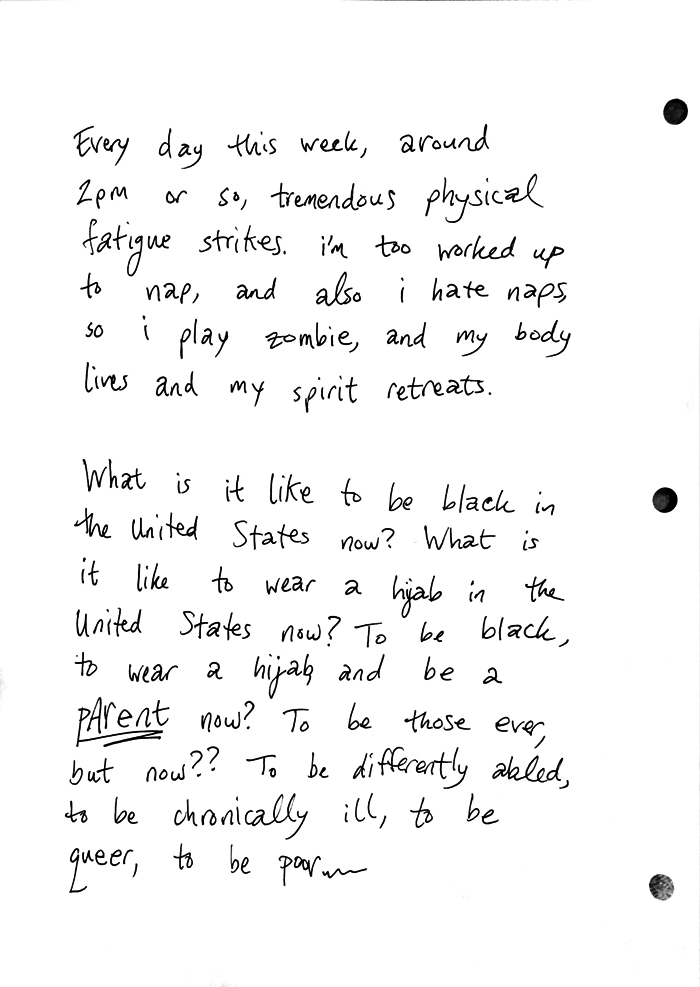 Every day this week, around
2pm or so, tremendous physical
fatigue strikes. i'm too worked up
to nap, and also i hate naps,
so i play zombie, and my body
lives and my spirit retreats.
What is it like to be black in
the United States now? What is
it like to wear a hijab in the
United States now? To be black,
to wear a hijab and be a
pArent now? To be those ever,
but now?? To be differently abled,
to be chronically ill, to be
queer, to be poor